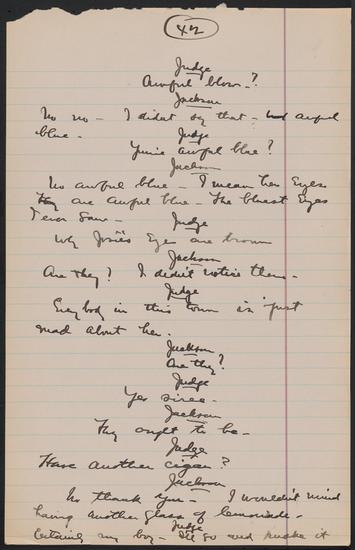 42
Judge
Awful blow-?
Jackson
No no - I didnt say that - not awful
blue -
Judge
Your'e awful blue?
Jackson
No awful blue - I mean her Eyes
They are awful blue - The bluest Eyes
I ever saw -
Judge
Why Josie's Eyes are brown
Jackson
Are they? I didn't notice them -
Judge
Everybody in this town is just
mad about her.
Jackson
Are they?
Judge
Yes siree -
Jackson
They ought to be -
Judge
Have another cigar?
Jackson
No thank you - I wouldn't mind
having another glass of lemonade -
Judge
Certainly my boy - I'll go and make it